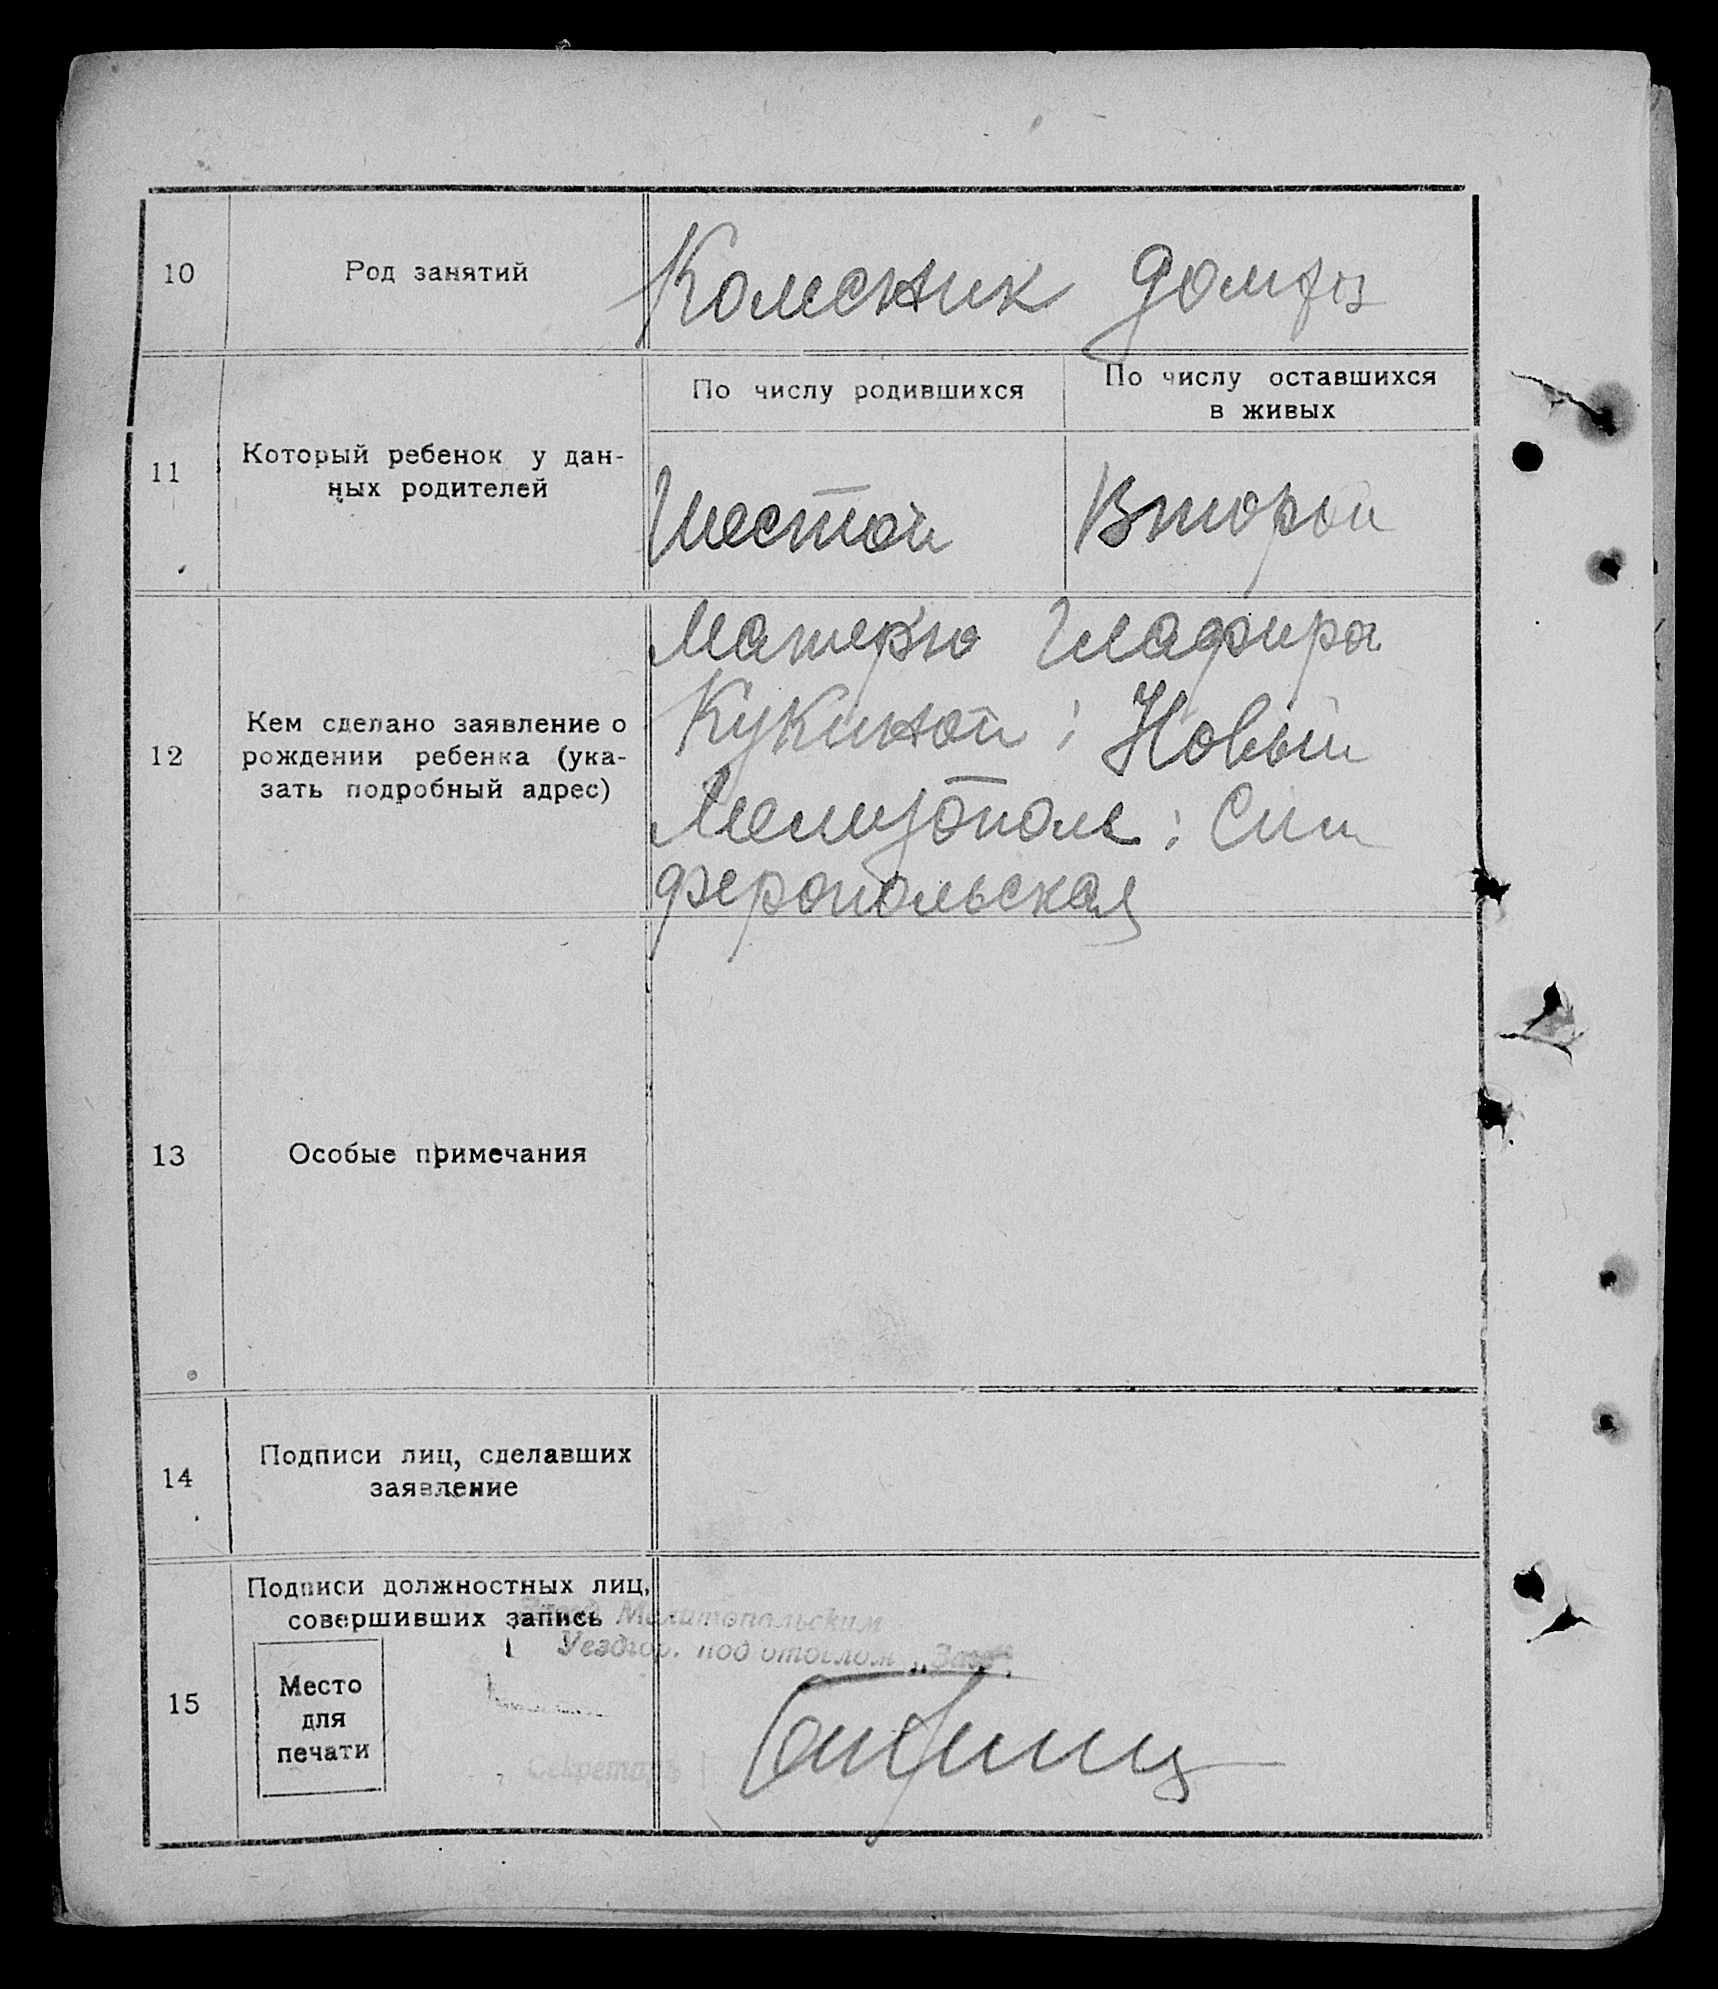 10 Род занятий Колесник домхоз
11 Который ребенок у дан-
ных родителей
По числу родившихся
По числу оставшихся
в живых
Шестой Второй
12 Кем сделано заявление о
рождении ребенка (ука-
зать подробный адрес)
Матерью Глафира
Кукиной; Новый
Мелитополь; Сим
феропольская
13 Особые примечания
14 Подписи лиц, сделавших
заявление
15 Подписи должностных лиц,
совершивших запись
Место
для
печати
Мелитопольским
под отделом „Загс"
Секретарь